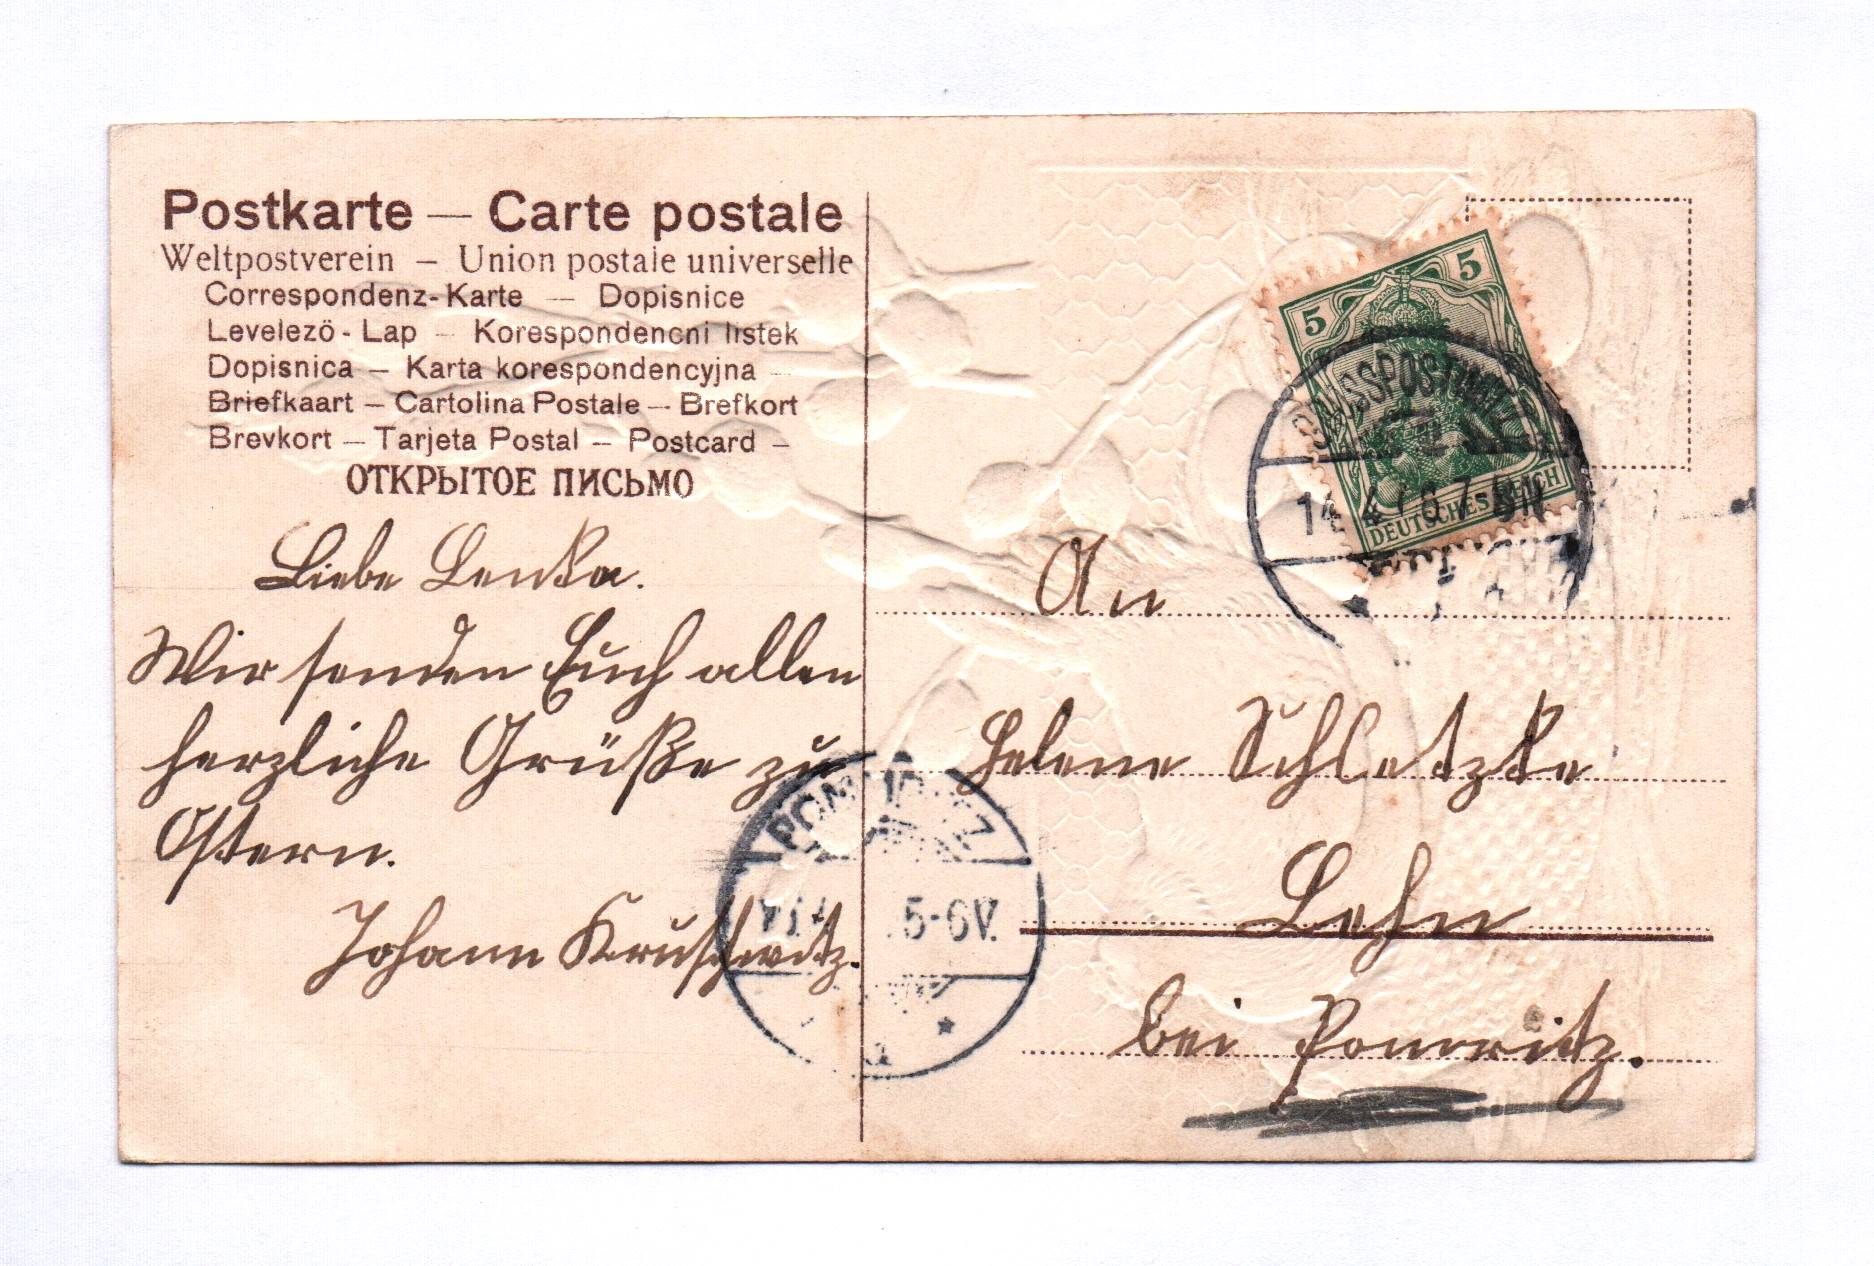 Postkarte — Carte postale
Weltpostverein — Union postale universelle
Correspondenz-Karte — Dopisnice
Levelező-Lap — Korespondencni listek
Dopisnica — Karta korespondencyjna —
Briefkaart — Cartolina Postale — Brefkort
Brevkort — Tarjeta Postal — Postcard —
ОТКРЫТОЕ ПИСЬМО
Liebe Lenka.
Wir senden Euch allen
herzliche Grüße zu
Ostern.
Johann Kruschwitz.
5
5
DEUTSCHES REICH
5-6V.
An
Helene Schletzke
Lehn
bei Pomritz.